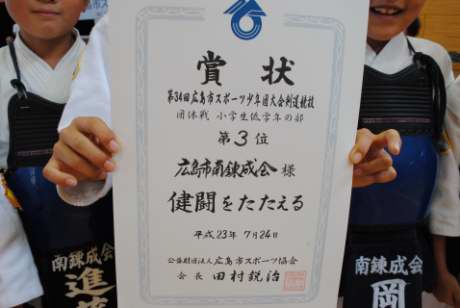 賞状
第34回広島市スポーツ少年団大会剣道競技
団体戦 小学生低学年の部
第3位
広島市南錬成会 様
健闘をたたえる
平成23年7月24日
公益財団法人広島市スポーツ協会
会長 田村鋭治
南錬成会
進
南錬成会
岡